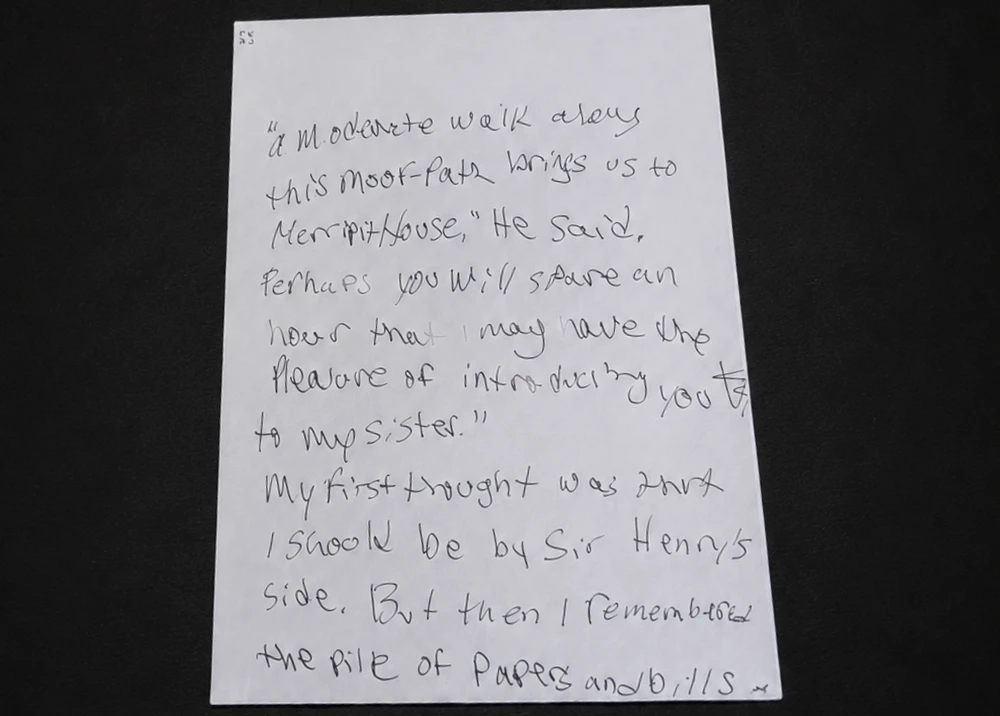 "a moderate walk along
this moor-Path brings us to
Merripit House," He said.
Perhaps you will spare an
hour that I may have the
Pleasure of introducing you
to my sister."
My first thought was that
I should be by Sir Henry's
side. But then I remembered
the pile of Papers and bills